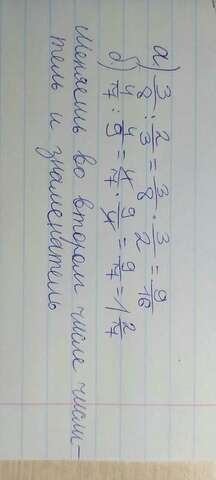 а) 3/8 : 2/3 = 3/8 · 3/2 = 9/16
б) 4/7 : 4/9 = 4/7 · 9/4 = 9/7 = 1 2/7
Меняешь во втором числе числи-
тель и знаменатель